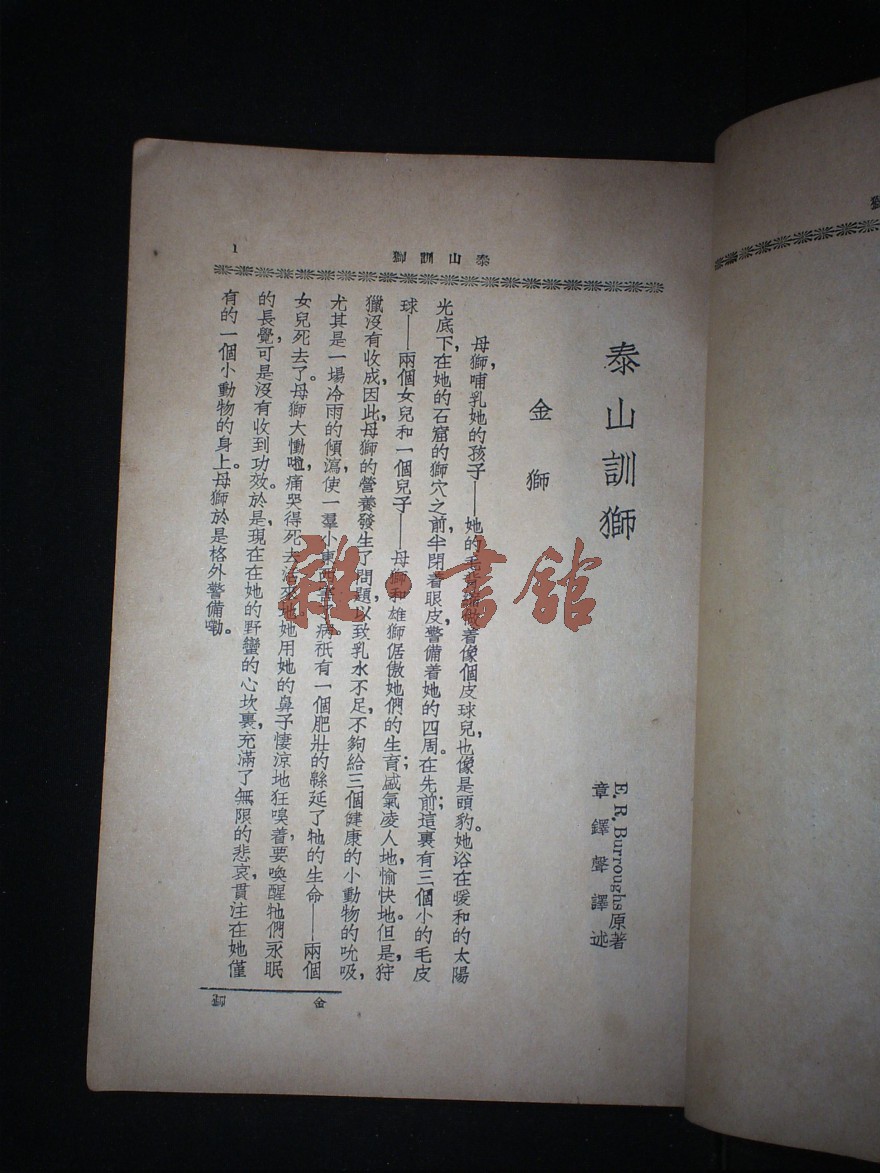 泰山訓獅
1
泰山訓獅
E. R. Burroughs 原著
章鐸聲譯述
金獅
母獅，哺乳她的孩子——她的毛茸着像個皮球兒，也像是頭豹。她浴在暖和的太陽
光底下，在她的石窟的獅穴之前，半閉着眼皮，警備着她的四周。在先前；這裏有三個小的毛皮
球——兩個女兒和一個兒子——母獅和雄獅倨傲她們的生育；盛氣凌人地，愉快地。但是，狩
獵沒有收成，因此，母獅的營養發生了問題，以致乳水不足，不夠給三個健康的小動物的吮吸，
尤其是一場冷雨的傾瀉，使一羣小東西病，祇有一個肥壯的緜延了牠的生命——兩個
女兒死去了。母獅大慟啦，痛哭得死去活來地，她用她的鼻子悽涼地狂嗅着，要喚醒牠們永眠
的長覺，可是沒有收到功效。於是，現在在她的野蠻的心坎裏，充滿了無限的悲哀，貫注在她僅
有的一個小動物的身上。母獅於是格外警備嘞。
金獅
雜·書館